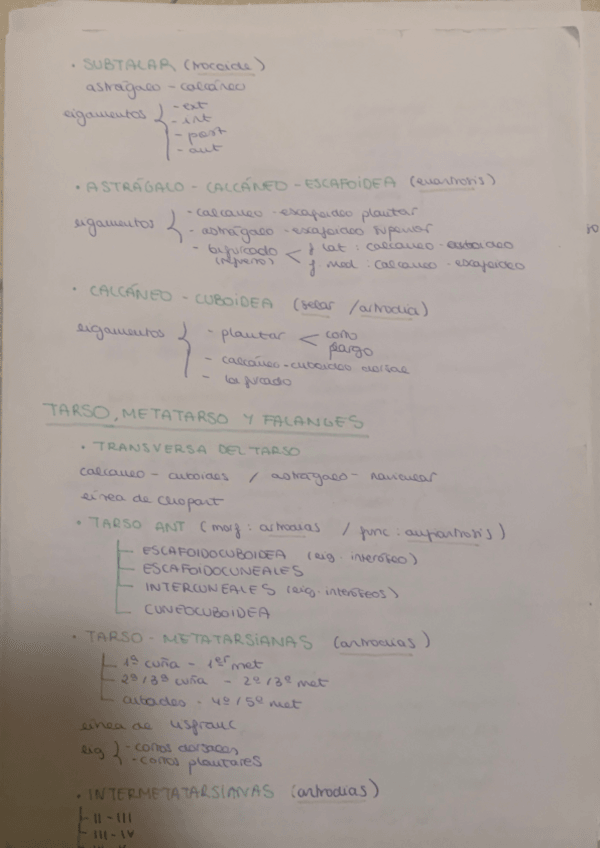 · SUBTALAR (trocoide)
astrágalo - calcáneo
ligamentos
- ext
- int
- post
- ant
· ASTRÁGALO - CALCÁNEO - ESCAFOÍDEA (enartrosis)
ligamentos
- calcaneo - escafoideo plantar
- astrágalo - escafoideo superior
- bifurcado < f lat : calcaneo - cuboideo
f. med : calcaneo - escafoideo
· CALCÁNEO - CUBOÍDEA (selar / artrodia)
ligamentos
- plantar < corto
largo
- calcáneo - cuboideo dorsal
- bifurcado
TARSO, METATARSO Y FALANGES
· TRANSVERSA DEL TARSO
calcaneo - cuboides / astrágalo - navicular
línea de Chopart
· TARSO ANT (morf : artrodias / func : anfiartrosis)
ESCAFOIDOCUBOIDEA (lig. interóseo)
ESCAFOIDOCUNEALES
INTERCUNEALES (lig. interóseos)
CUNEOCUBOIDEA
· TARSO - METATARSIANAS (artrodias)
1ª cuña - 1er met
2ª/3ª cuña - 2º/3º met
cuboides - 4º/5º met
línea de Lisfranc
lig } - cortos dorsales
- cortos plantares
· INTERMETATARSIANAS (artrodias)
- II - III
- III - IV